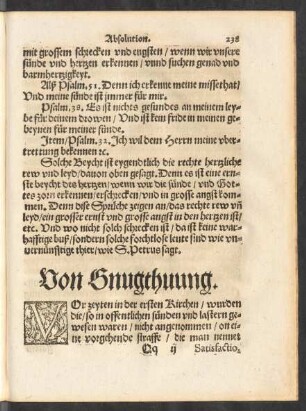 Absolution. 238
mit grossem schrecken vnd engsten / wenn wir vnsere
sünde vnd hertzen erkennen / vnnd suchen genad vnd
barmhertzigkeyt.
Alß Psalm. 51. Denn ich erkenne meine missethat /
Vnd meine sünde ist jmmer für mir.
Psalm. 38. Es ist nichts gesundes an meinem ley-
be für deinem drowen / Vnd ist kein fride in meinen ge-
beynen für meiner sünde.
Item / Psalm. 32. Ich wil dem Herrn meine vber-
trettung bekennen ꝛc.
Solche Beycht ist eygendtlich die rechte hertzliche
rew vnd leyd / dauon oben gesagt. Denn es ist eine ern-
ste beycht des hertzen / wenn wir die sünde / vnd Got-
tes zorn erkennen / erschrecken / vnd in grosse angst kom-
men. Denn dise Sprüche zeygen an / das rechte rew vñ
leyd / ein grosser ernst vnd grosse angst in den hertzen ist /
etc. Vnd wo nicht solch schrecken ist / da ist keine war-
hafftige buß / sondern solche forchtlose leute sind wie vn-
uernünfftige thier / wie S. Petrus sagt.
Von Gnugthuung.
VOr zeyten in der ersten Kirchen / wurden
die / so in offentlichen sünden vnd lastern ge-
wesen waren / nicht angenommen / on ei-
ne vorgehende straffe / die man nennet
Qq ij Satisfactio-